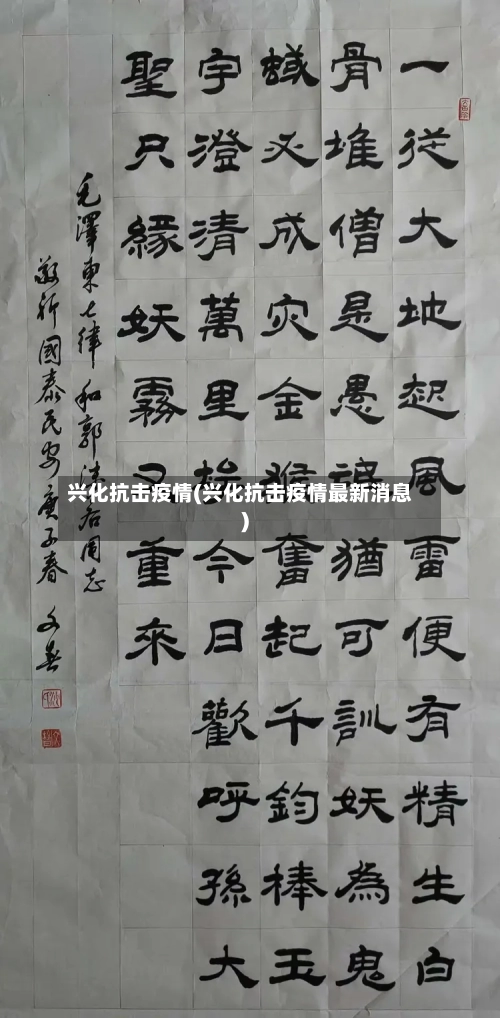 一從大地起風雷便有精生白
骨堆僧是愚氓猶可訓妖為鬼
蜮必成灾金猴奮起千鈞棒玉
宇澄清萬里埃今日歡呼孫大
聖只緣妖霧又重來
毛澤東七律 和郭沫若同志
敬祈國泰民安庚子春 文
兴化抗击疫情(兴化抗击疫情最新消息
)